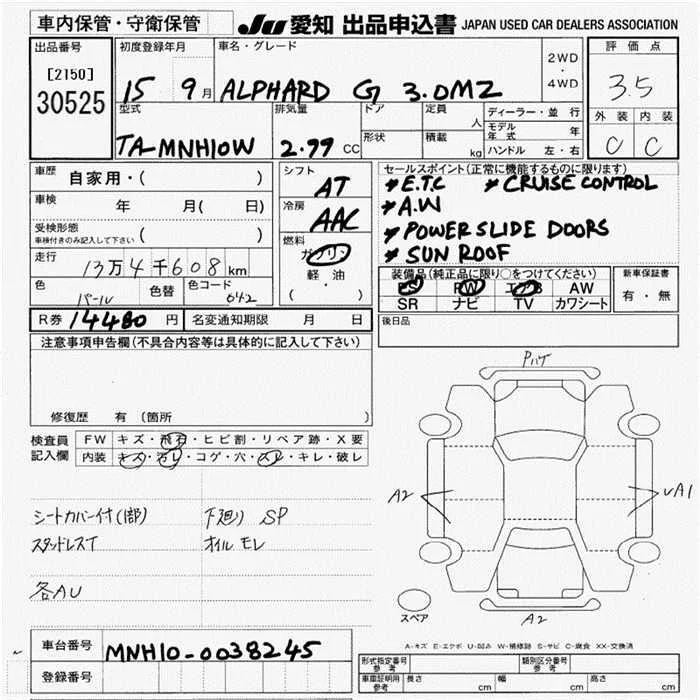 車内保管・守衛保管
JU 愛知 出品申込書 JAPAN USED CAR DEALERS ASSOCIATION
出品番号
[2150]
30525
初度登録年月
15 9月
車名・グレード
ALPHARD G 3.0MZ
2WD
・
4WD
評価点
3.5
外装 内装
C C
型式
TA-MNH10W
排気量
2.99 CC
ドア
形状
定員
人
積載
kg
ディーラー・並行
モデル年式 年
ハンドル 左・右
車歴 自家用・( )
車検 年 月( 日)
受検形態
車検付きのみ記入して下さい ( )
走行
13万4千608km
色
パール
色替
色コード
042
シフト
AT
冷房
AAC
燃料
ガソリン
軽油
( ・ )
セールスポイント(正常に機能するものに限ります)
*E.T.C *CRUISE CONTROL
*A.W
*POWER SLIDE DOORS
*SUN ROOF
装備品(純正品に限り○をつけてください)
PS PW エアB AW
SR ナビ TV カワシート
新車保証書
有・無
R券 14480 円
名変通知期限 月 日
後日品
注意事項申告欄(不具合内容等は具体的に記入して下さい)
修復歴 有 (箇所
検査員記入欄
FW キズ・飛石・ヒビ割・リペア跡・X要
内装 キズ・汚レ・コゲ・穴・スレ・キレ・破レ
シートカバー付(1部)
スタッドレスT
各AU
下廻り SP
オイルモレ
Pハゲ
A2
UA1
A2
スペア
A-キズ E-エクボ U-凹み W-補修跡 S-サビ C-腐食 XX-交換済
車台番号 MNH10-0038245
登録番号
形式指定番号
参考
類別区分番号
参考
車庫証明用
参考
長さ cm 幅 cm 高さ cm